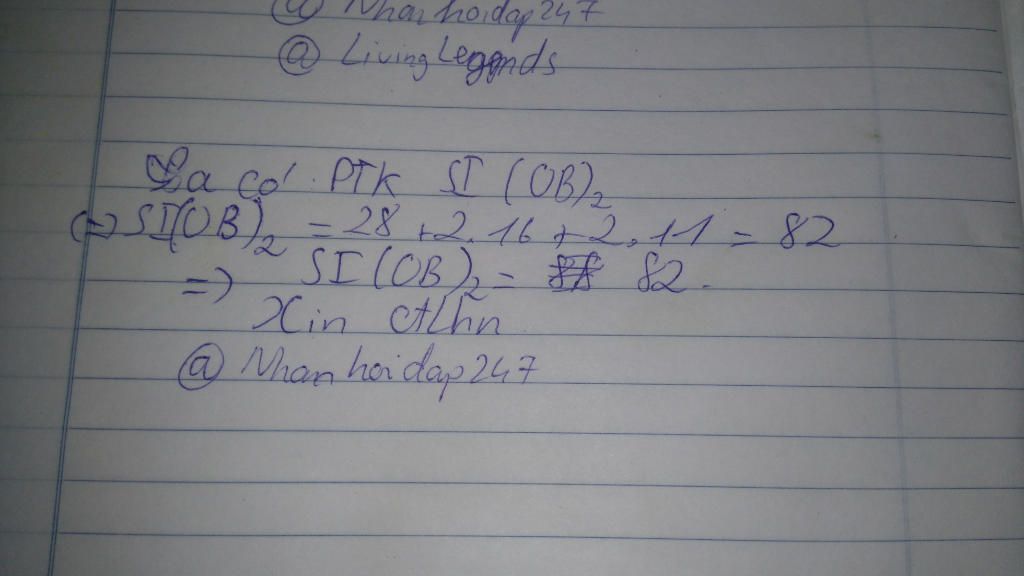 @ Nhanhoidap247
@ Living Legends
Ta có PTK SI (OB)2
(=) SI(OB)2 = 28 +2.16 +2.11 = 82
=) SI(OB)2 = 82.
Xin ctlhn
@ Nhanhoidap247